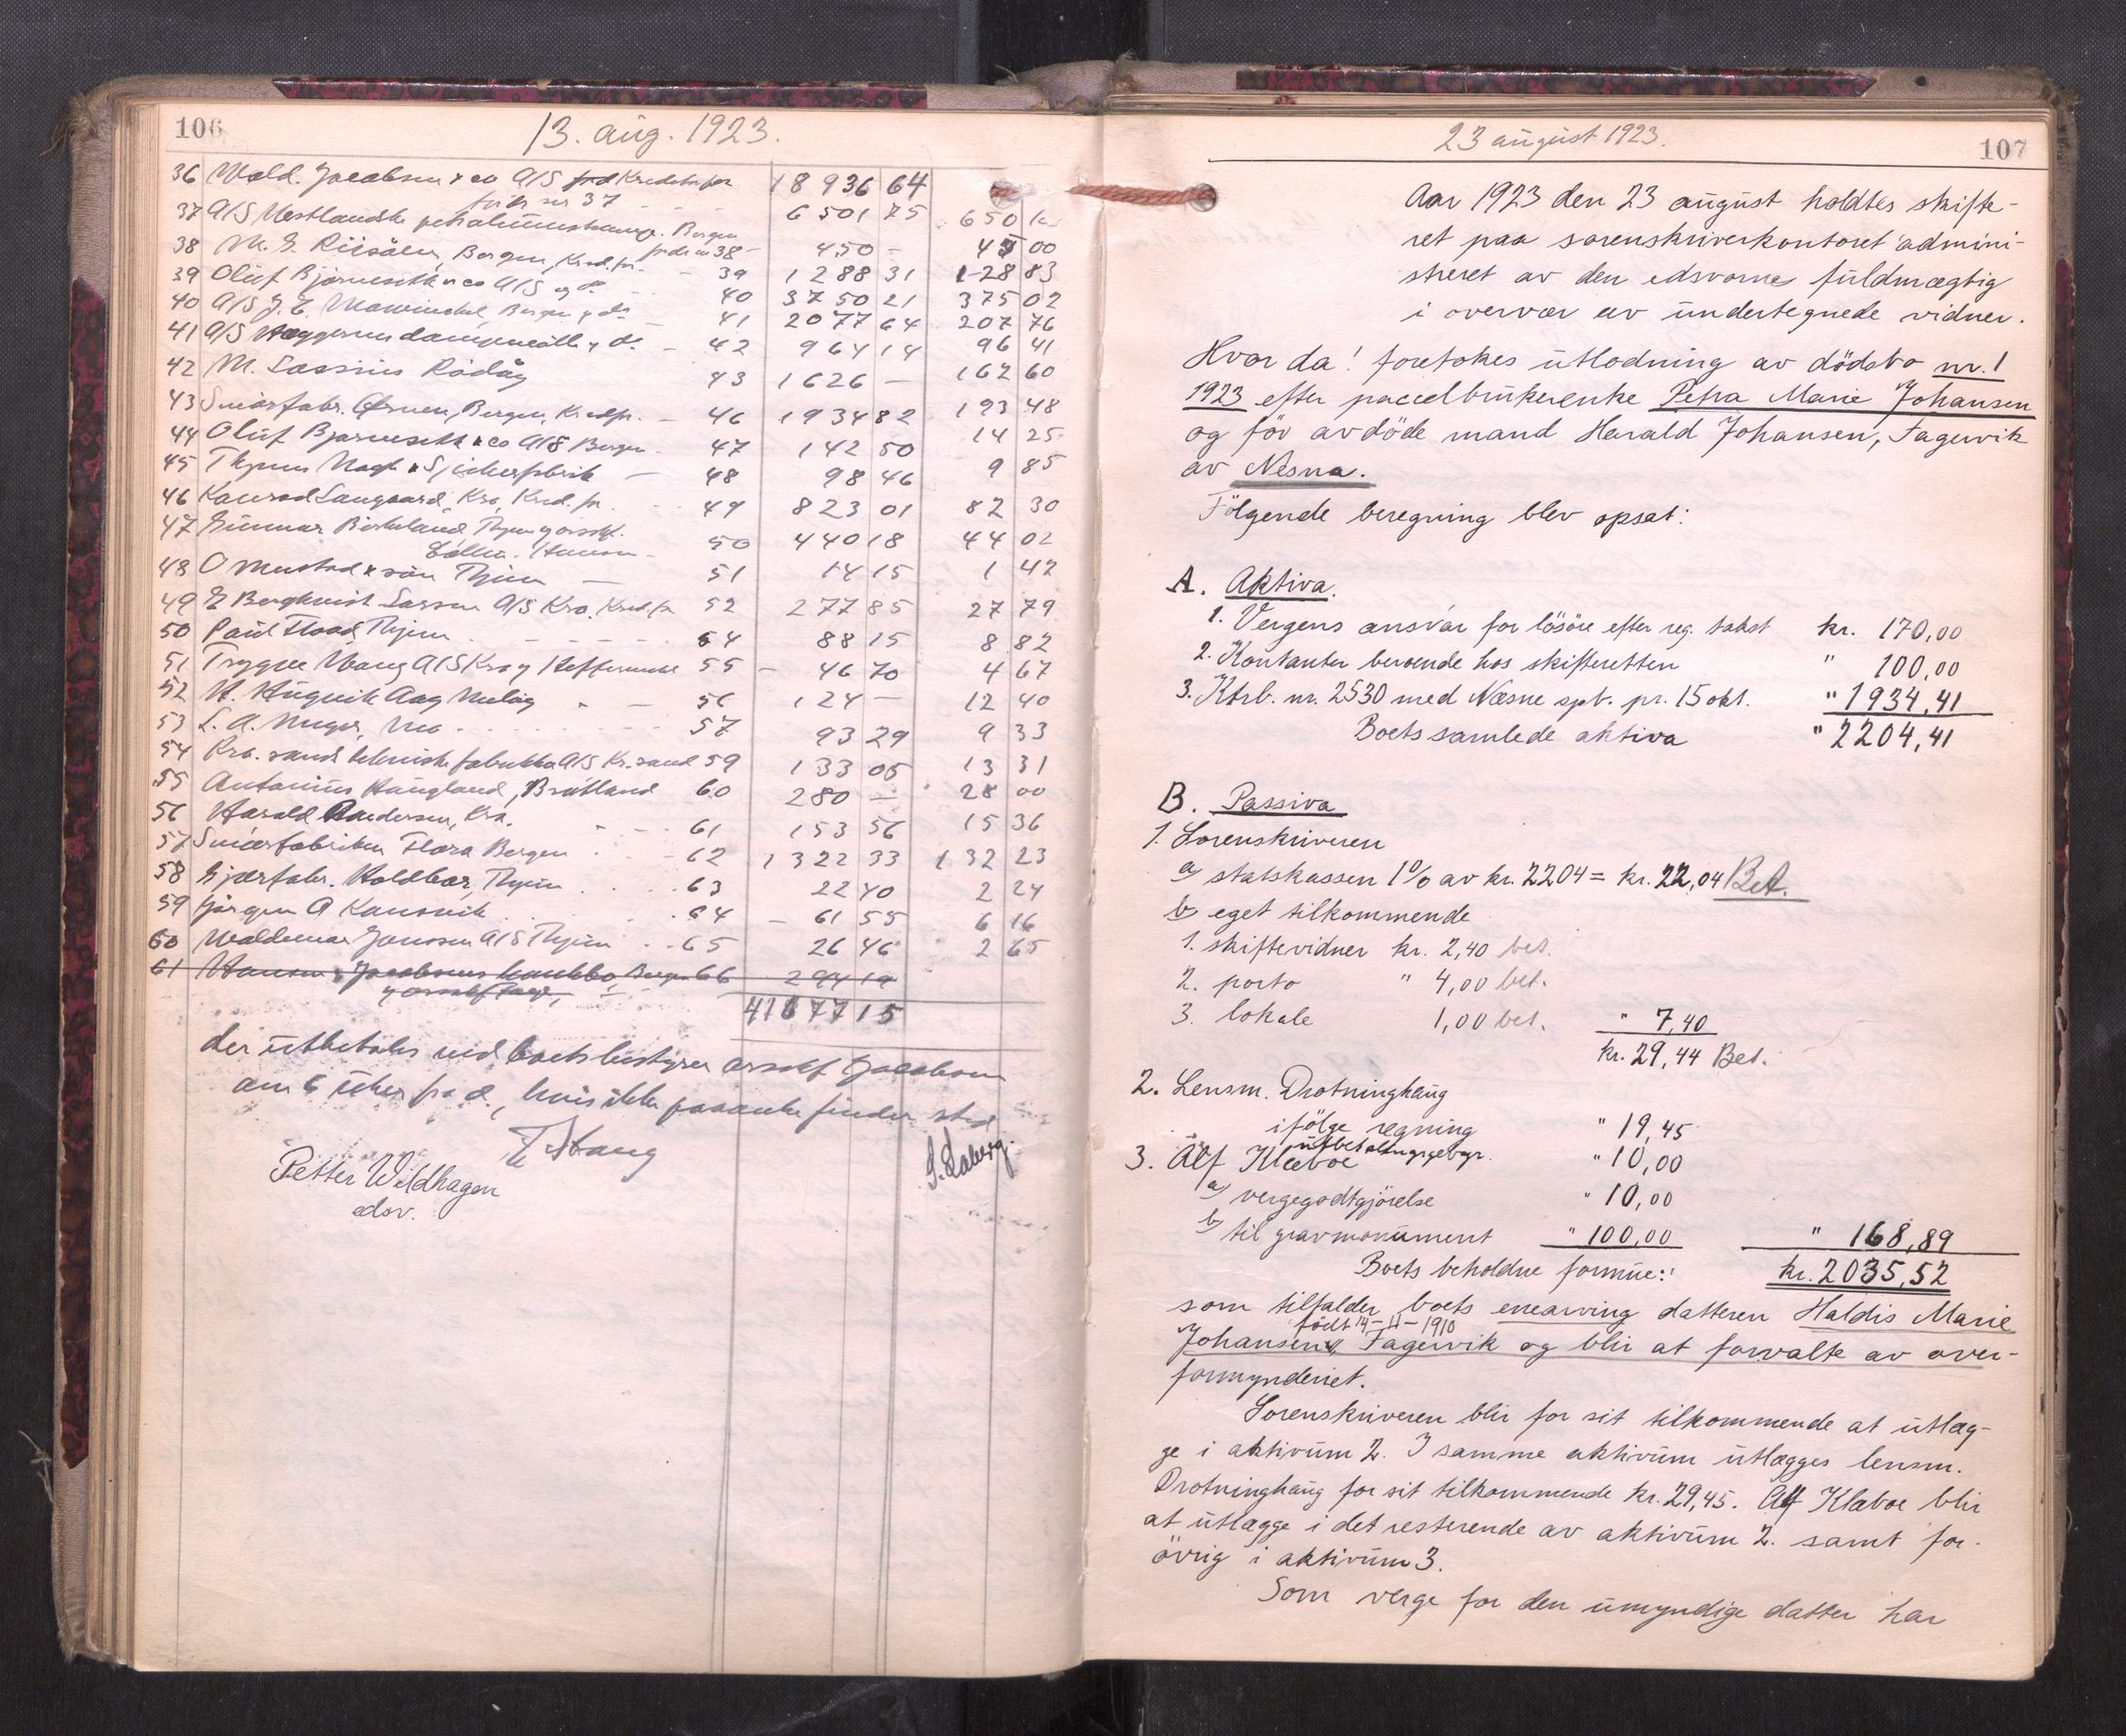 106
13. aug. 1923.
36 Wald. Jacobsen & co A/S Kreditorfor 18936 64
37 A/S Vestlandske petroleumskomp. Bergen 37 6501 75 650
38 M. G. Riisöen, Bergen, Kred.for. 38 450 — 45 00
39 Oluf Bjørneseth & co A/S og do 39 1288 31 128 83
40 A/S J. E. Mowinckel, Bergen, do 40 3750 21 375 02
41 A/S Vaggerens dampmølle, do 41 2077 64 207 76
42 M. Lassius Rödåg 42 964 14 96 41
43 1626 — 162 60
43 Smørfabr. Ørnen, Bergen, Kredfor. 46 1934 82 193 48
44 Oluf Bjørneseth & co A/S Bergen 47 142 50 14 25
45 48 98 46 9 85
46 Konrad Langaard, Kra, Kred.for. 49 823 01 82 30
47 Gunnar Birkeland, Thjem, orsakf.
50 440 18 44 02
48 O Mustad & sön Thjem — 51 14 15 1 42
49 E Bergkvist Larssen A/S Kra. Kred.for 52 277 85 27 79
50 Paul Fload, Thjem 54 88 15 8 82
51 Trygve Wang A/S Kra 55 46 70 4 67
52 56 124 — 12 40
53 L. A. Meyer, Mo 57 93 29 9 33
54 Kr. sands tekniske fabrikker A/S Kr.sand 59 133 05 13 31
55 Antonius Haugland, Bråtland 60 280 — 28 00
56 Harald Andersen, Kra. 61 153 56 15 36
57 Smørfabriken Flora Bergen 62 1322 33 132 23
58 Gjærfabr. Holdbar, Thjem 63 22 40 2 24
59 Jörgen A Kaursvik 64 — 61 55 6 16
60 Waldemar Janssen A/S Thjem 65 26 46 2 65
61 Hansen & Jacobsens Bergen 66 294 19
41677 15
der utbetales ved boets bestyrer orsakf Jacobsen
om 6 uker fra d. d., hvis ikke paaanke finder sted
T. Haug
Petter Wildhagen
edsv.
107
23 august 1923.
Aar 1923 den 23 august holdtes skifte-
ret paa sorenskriverkontoret admini-
streret av den edsvorne fuldmægtig
i overvær av undertegnede vidner.
Hvor da! foretokes utlodning av dödsbo nr. 1
1923 efter parcelbrukerenke Petra Marie Johansen
og för avdöde mand Harald Johansen, Fagervik
av Nesna.
Fölgende beregning blev opsat:
A. Aktiva.
1. Vergens ansvar for lösöre efter reg. takst kr. 170,00
2. Kontanter beroende hos skifteretten " 100,00
3. Ktrb. nr. 2530 med Næsne spb. pr. 15 okt. " 1934,41
Boets samlede aktiva " 2204,41
B. Passiva
1. Sorenskriveren
a) statskassen 1% av kr. 2204 = kr. 22,04 Bet.
b) eget tilkommende
1. skiftevidner kr. 2,40 bet.
2. porto " 4,00 bet.
3. lokale 1,00 bet. " 7,40
kr. 29,44 Bet.
2. Lensm. Drotninghaug
ifölge regning " 19,45
utbetalingsgebyr. " 10,00
3. Alf Klæboe
a) vergegodtgjörelse " 10,00
b) til gravmonument " 100,00 " 168,89
Boets beholdne formue: kr. 2035,52
som tilfalder boets enearving datteren Haldis Marie
födt 14-11-1910
Johansen, Fagervik og blir at forvalte av over-
formynderiet.
Sorenskriveren blir for sit tilkommende at utlæg-
ge i aktivum 2. I samme aktivum utlægges lensm.
Drotninghaug for sit tilkommende kr. 29,45. Alf Klæboe blir
at utlægge i det resterende av aktivum 2. samt for
övrig i aktivum 3.
Som verge for den umyndige datter har